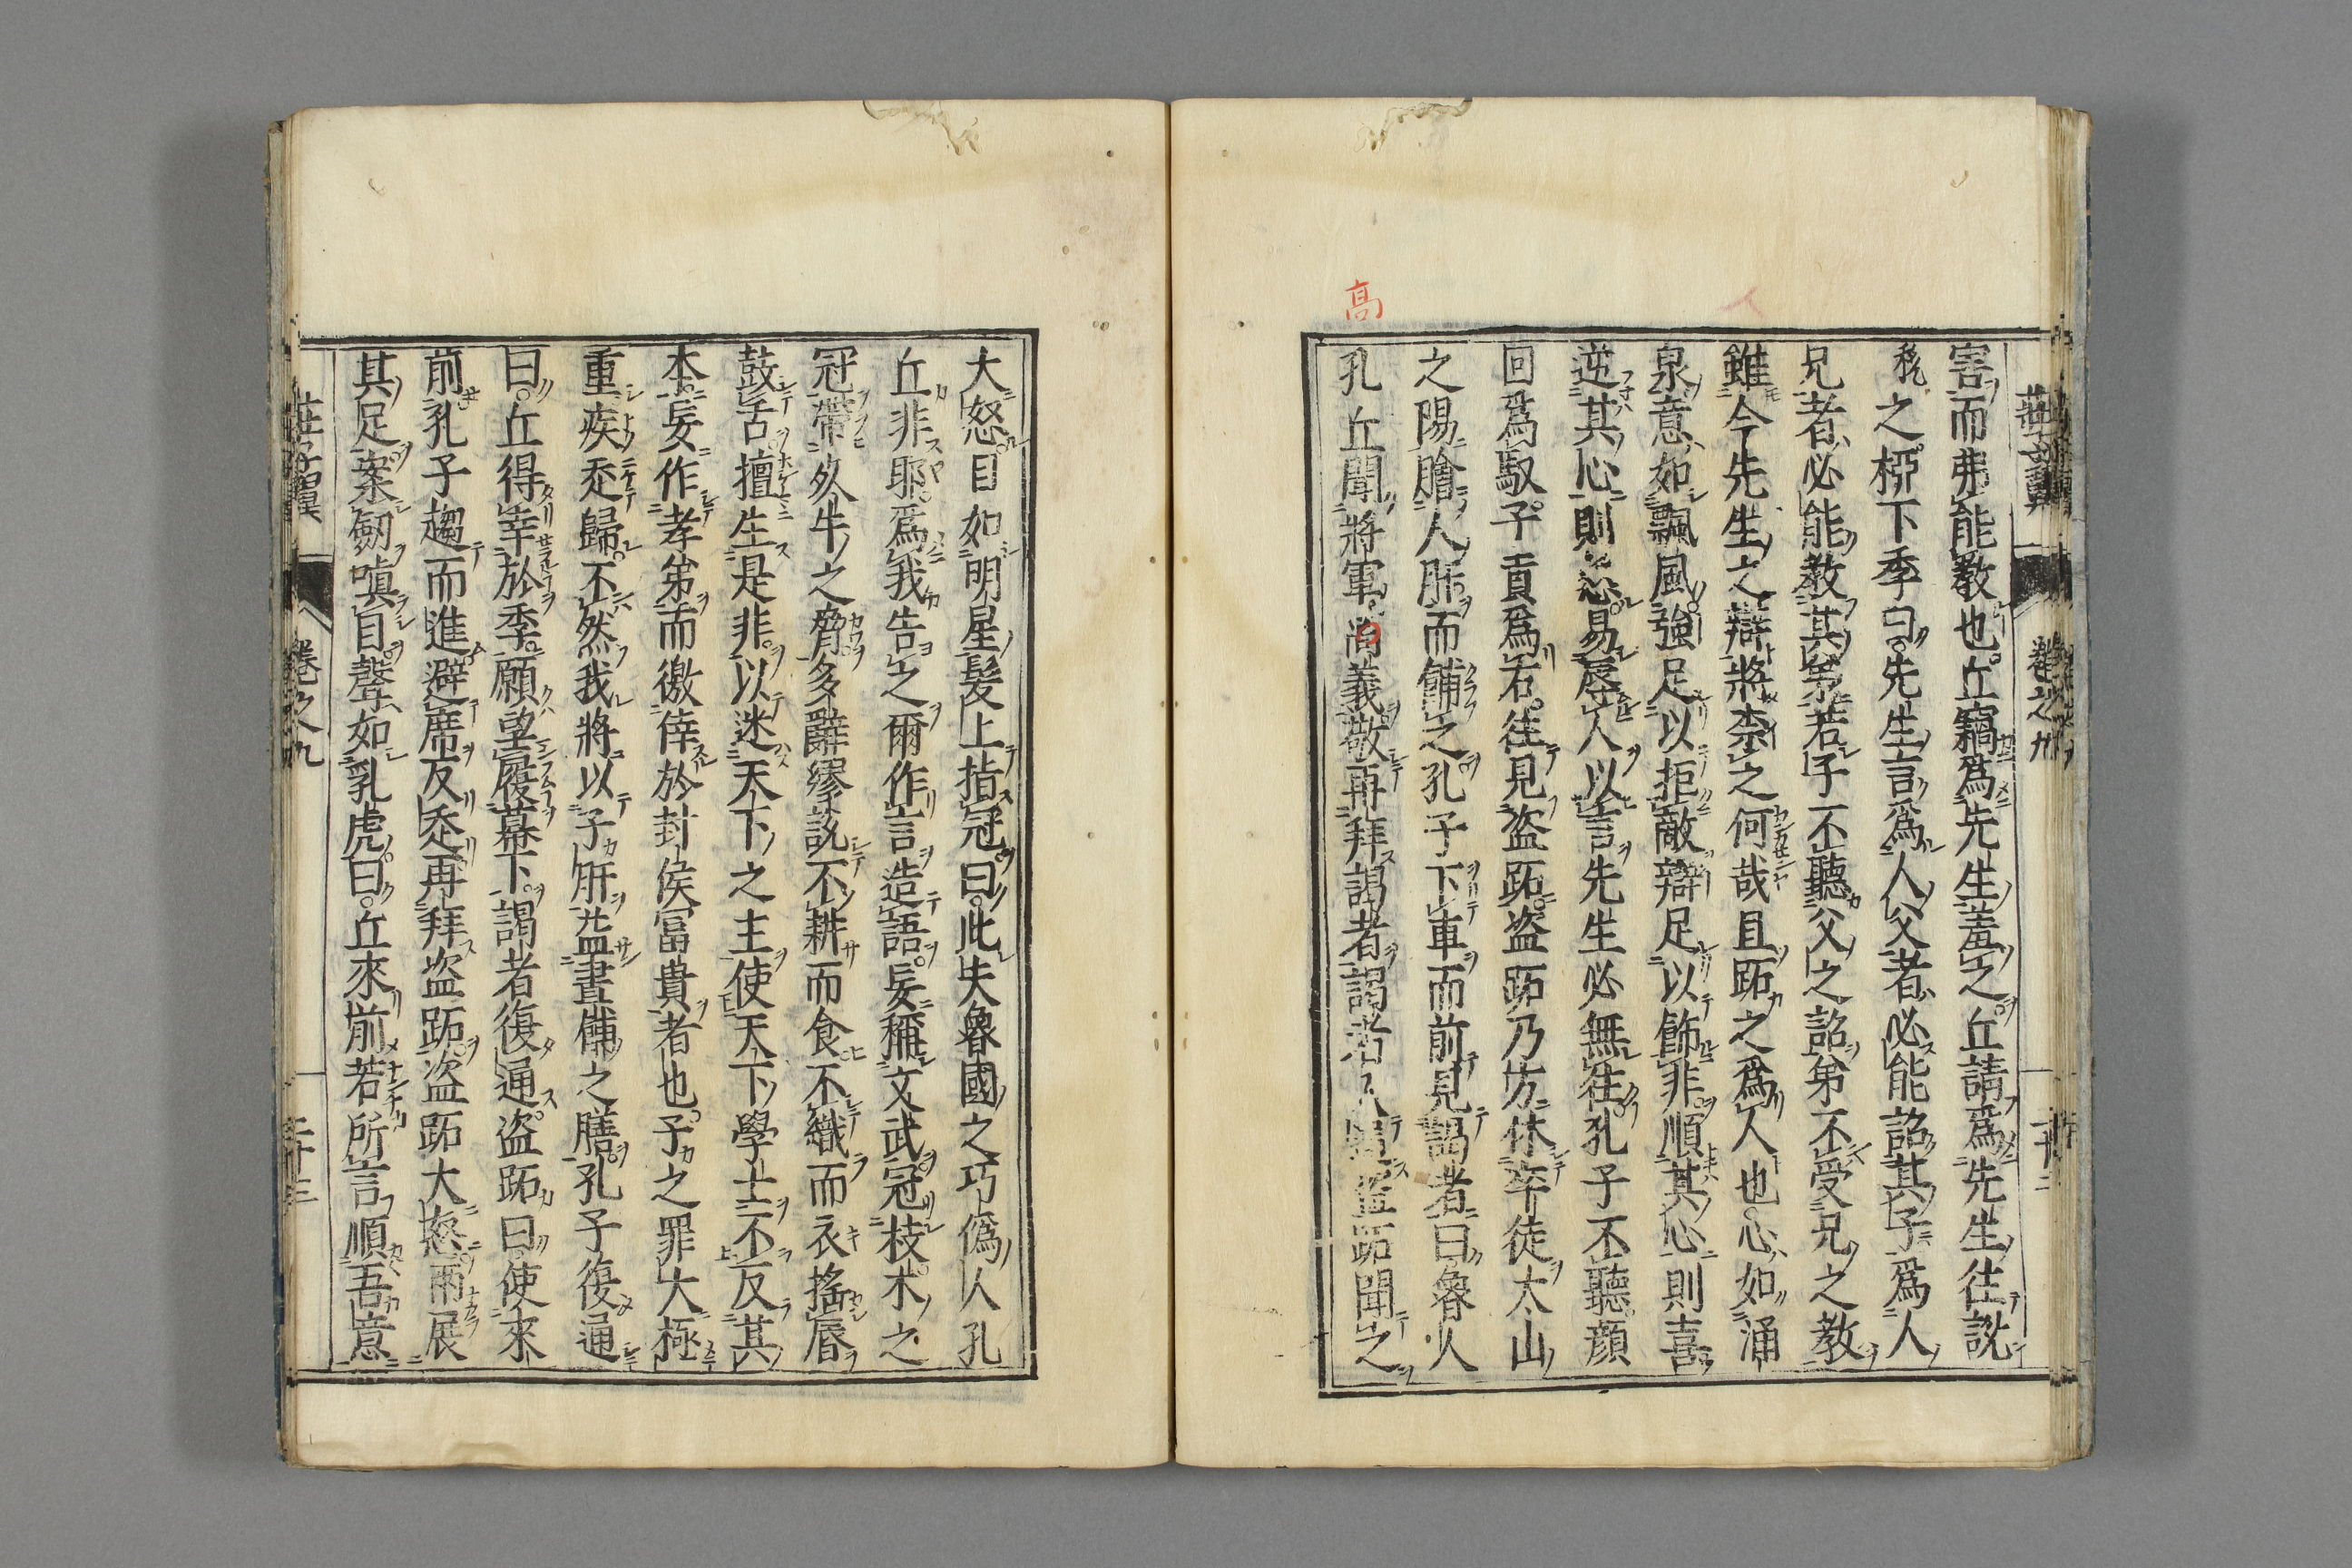 害而弗能教也丘竊爲先生羞之丘請爲先生往說
之柳下季曰先生言爲人父者必能詔其子爲人
兄者必能教其弟若子不聽父之詔弟不受兄之教
雖今先生之辯將柰之何哉且跖之爲人也心如涌
泉意如飄風強足以拒敵辯足以飾非順其心則喜
逆其心則怒易辱人以言先生必無往孔子不聽顔
回爲馭子貢爲右往見盗跖盗跖乃方休卒徒太山
之陽膾人肝而餔之孔子下車而前見謁者曰魯人
孔丘聞將軍高義敬再拜謁者謁者入通盗跖聞之
高
大怒目如明星髮上指冠曰此夫魯國之巧僞人孔
丘非耶爲我告之爾作言造語妄稱文武冠枝木之
冠帶死牛之脅多辭繆說不耕而食不織而衣搖脣
鼓舌擅生是非以迷天下之主使天下學士不反其
本妄作孝弟而徼倖於封侯富貴者也子之罪大極
重疾走歸不然我將以子肝益晝餔之膳孔子復通
曰丘得幸於季願望履幕下謁者復通盗跖曰使來
前孔子趨而進避席反走再拜盗跖盗跖大怒兩展
其足案劒嗔目聲如乳虎曰丘來前若所言順吾意
莊子翼 卷之九 二十三